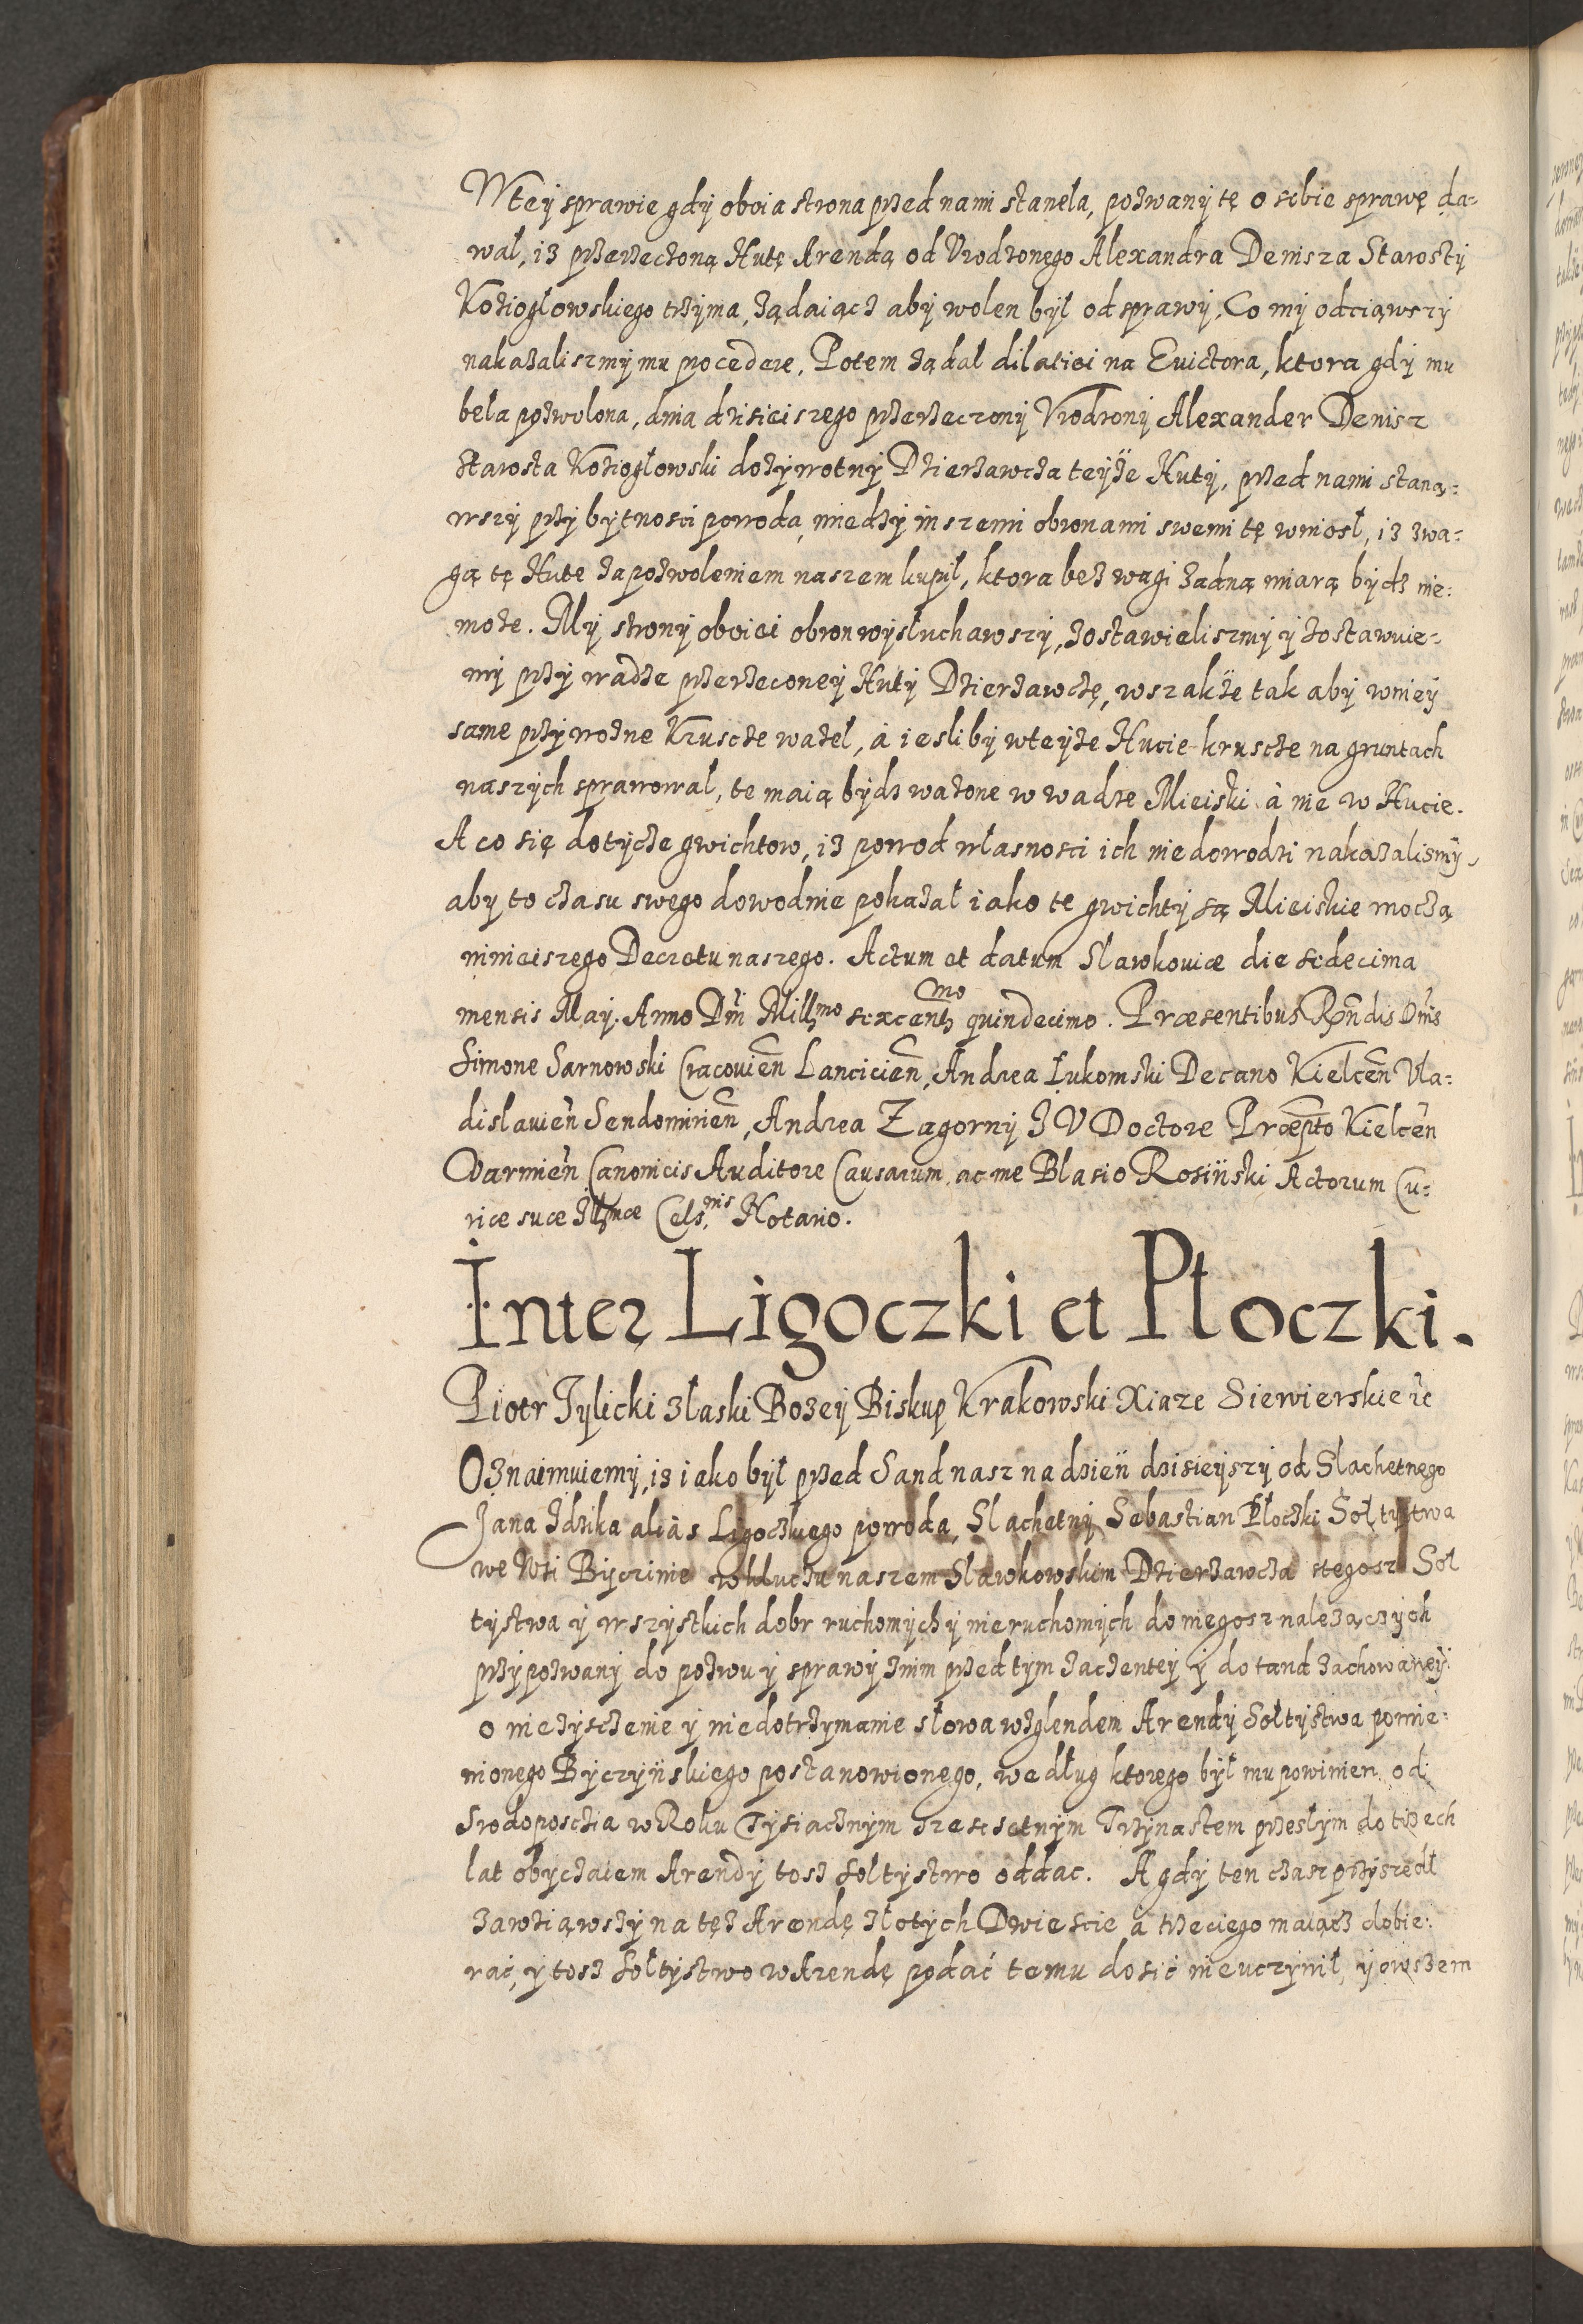 Wtey sprawie gdÿ oboia strona przed nami stanęła, pozwanÿ tę o sobie sprawę da=
wał, iz przerzeczoną Hutę Arendą od Vrodzonego Alexandra Denisza Starostÿ
Koziogłowskiego trzÿma, ządaiącz abÿ wolen bÿł od sprawÿ. Co mÿ odciąwszÿ
nakazaliszmÿ mu procedere. Potem ządał dilatiei na Evictora, ktora gdÿ mu
beła pozwolona, dnia dzisieiszego przerzeczonÿ Vrodzonÿ Alexander Denisz
Starosta Koziogłowski dozÿwotnÿ Dzierzawcza teÿze Hutÿ, przed nami staną=
wszÿ przÿ bytnosci powoda, miedzÿ inszemi obronami swemi tę wniosł, iz zwa=
gą tę Hute za pozwoleniem naszem kupił, ktora bez wagi zadną miarą bÿdz nie=
moze. Mÿ stronÿ oboiei obron wÿsłuchawszÿ, zostawieliszmÿ ÿ zostawuie=
mÿ przÿ wadze przerzeconeÿ Hutÿ Dzierzawczę, wszakze tak abÿ wnieÿ
same przÿwozne Kruscze wazeł, à iesli bÿ wteÿze Hucie kruscze na gruntach
naszÿch sprawował, te maią bÿdz wazone w wadze Mieiski à nie w Hucie.
A co się dotÿcze gwichtow, iz powod własnosci ich nie dowodzi nakazalismÿ
aby to czasu swego dowodnie pokazał iako te gwichtÿ są Mieiskie moczą
ninieiszego Decretu naszego. Actum et datum Slawkoviæ die sedecima
mensis Maÿ. Anno Dni Millmo sexcentmo quindecimo. Præsentibus Rndis Dnis
Simone Sarnowski Cracovien Lancicien, Andrea Łukomski Decano Kielcen Vla=
dislavien Sendomirien, Andrea Zagornÿ I V Doctore Præpto Kielcen
Varmien Canonicis Auditore Causarum, ac me Blasio Rosiński Actorum Cu=
riæ suæ Illmæ Cels.nis Notario.
Inter Ligoczki et Płoczki.
Piotr Tylicki z łaski Bozeÿ Biskup Krakowski Xiaze Siewierskie ec
Oznaimuiemÿ, iz iako bÿł przed Sand nasz na dzień dzisieÿszÿ od Slachetnego
Jana Idzika aliàs Ligoczkiego powoda, Slachetnÿ Sebastian Płoczki Sołtystwa
we Wsi Bÿczinie wkluczu naszem Slawkowskim Dzierzawcza stegosz Soł
tÿstwa ÿ wszÿstkich dobr ruchomÿch ÿ nieruchomÿch do niegosz nalezączÿch
przÿpozwanÿ do pozwu ÿ sprawÿ znim przed tÿm zaczenteÿ ÿ do tand zachowaneÿ
o nieziszczenie ÿ niedotrzÿmanie słowa wzglendem Arendÿ Sołtÿstwa pomie=
nionego Bÿczyńskiego postanowionego, według ktorego bÿł mu powinien od
Srodoposczia w Roku Tÿsiacznÿm Szescsetnÿm Trzÿnastem przeszłÿm do trzech
lat obÿczaiem Arendÿ tosz sołtÿstwo oddac. A gdÿ ten czasz przÿszedł
zawziąwszÿ na tęz Arendę złotÿch Dwiescie a trzeciego maiącz dobie=
rać, ÿ tosz sołtÿstwo w Arendę podać temu dosić nieuczÿnił, ÿ owszem